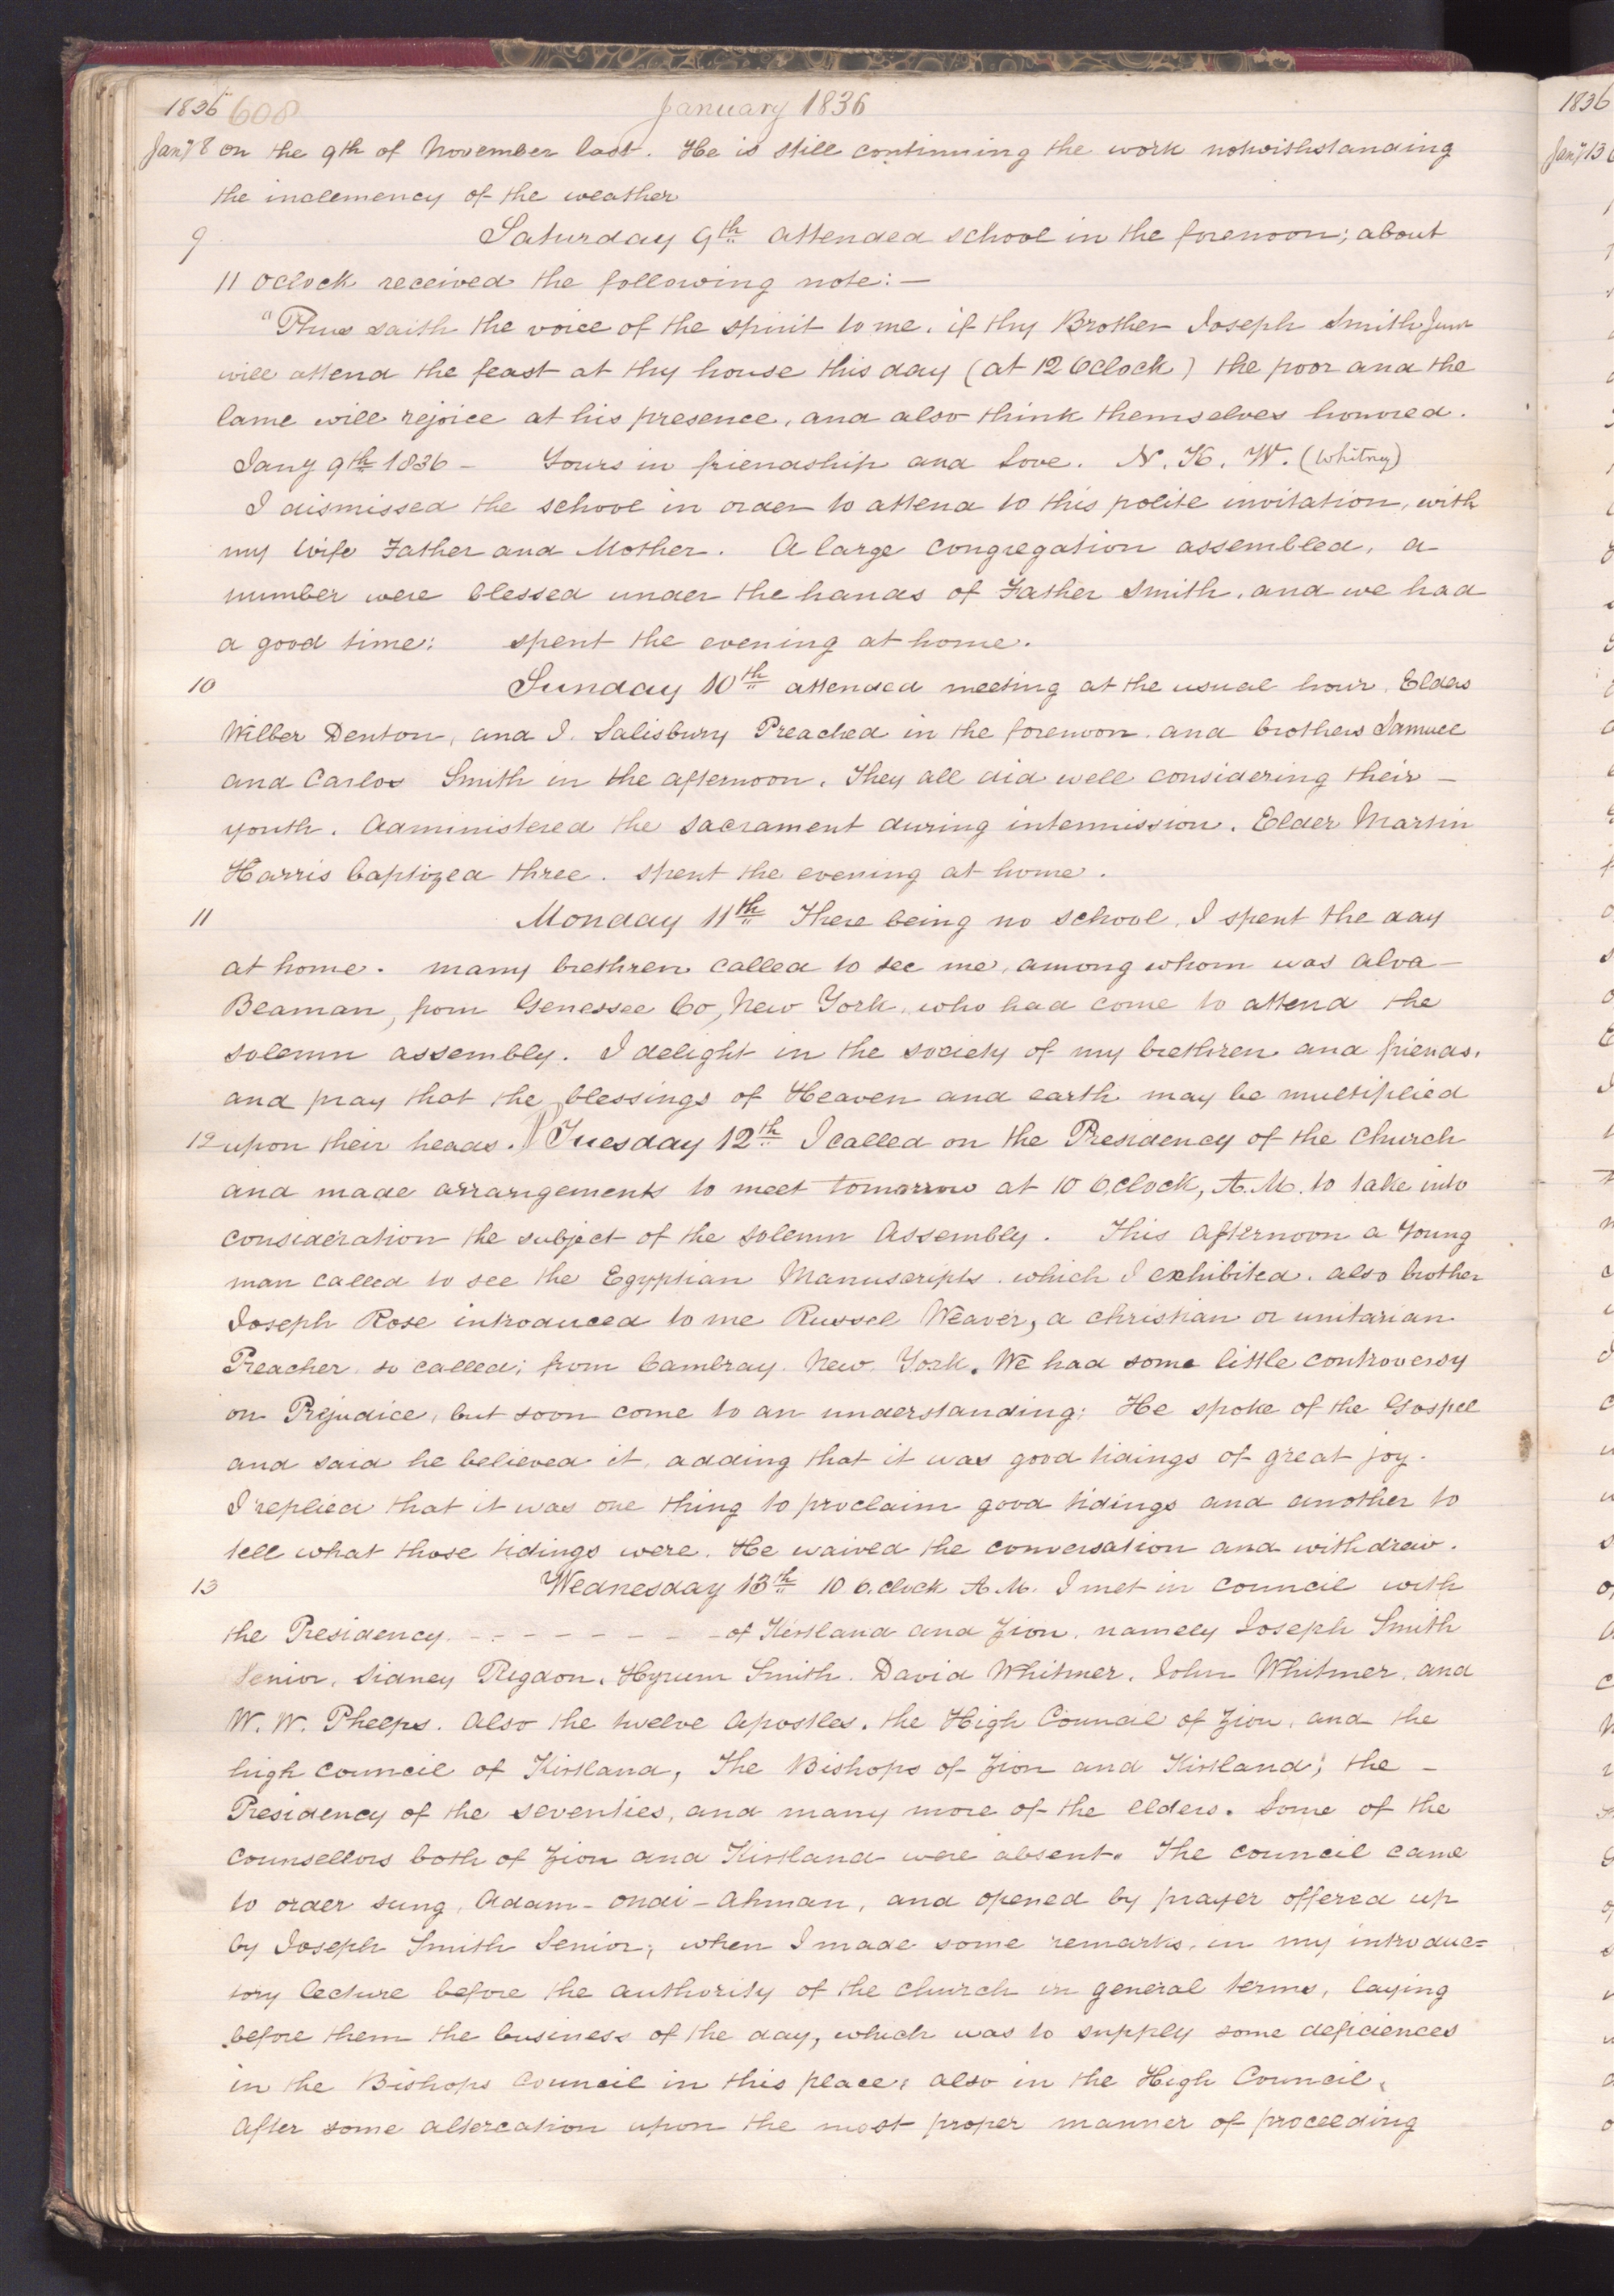 1836 608 January 1836
Jany 8 on the 9th of November last. He is still continuing the work notwithstanding
the inclemency of the weather
9 Saturday 9th attended school in the forenoon; about
11 oclock received the following note:—
"Thus saith the voice of the spirit to me, if thy Brother Joseph Smith Junr
will attend the feast at thy house this day (at 12 Oclock) the poor and the
lame will rejoice at his presence, and also think themselves honored.
Jany 9th 1836 — Yours in friendship and Love. N. K. W. (Whitney)
I dismissed the school in order to attend to this polite invitation, with
my wife Father and Mother. A large congregation assembled, a
number were blessed under the hands of Father Smith, and we had
a good time: spent the evening at home.
10 Sunday 10th attended meeting at the usual hour. Elders
Wilber Denton, and J. Salisbury Preached in the forenoon and brothers Samuel
and Carlos Smith in the afternoon. They all did well considering their —
youth. Administered the Sacrament during intermission. Elder Martin
Harris baptized three. spent the evening at home.
11 Monday 11th There being no school, I spent the day
at home. many brethren called to see me, among whom was Alva —
Beaman, from Genessee Co, New York, who had come to attend the
solemn assembly. I delight in the society of my brethren and friends.
and pray that the blessings of Heaven and earth may be multiplied
12 upon their heads. Tuesday 12th I called on the Presidency of the Church
and made arrangements to meet tomorrow at 10 O,clock, A.M. to take into
consideration the subject of the Solemn Assembly. This afternoon a Young
man called to see the Egyptian Manuscripts. which I exhibited. also brother
Joseph Rose introduced to me Russel Weaver, a christian or unitarian
Preacher so called; from Cambray New York. We had some little controversy
on Prejudice, but soon come to an understanding; He spoke of the Gospel
and said he believed it, adding that it was good tidings of great joy.
I replied that it was one thing to proclaim good tidings and another to
tell what those tidings were. He waived the conversation and withdrew.
13 Wednesday 13th 10 O.clock A.M. I met in council with
the Presidency - - - - - - - - of Kirtland and Zion, namely Joseph Smith
Senior, Sidney Rigdon, Hyrum Smith. David Whitmer, John Whitmer, and
W. W. Phelps. Also the twelve Apostles, the High Council of Zion, and the
high council of Kirtland, The Bishops of Zion and Kirtland; the —
Presidency of the seventies, and many more of the elders. Some of the
Counsellors both of Zion and Kirtland were absent. The council came
to order sung, Adam-ondi-Ahman, and opened by prayer offered up
by Joseph Smith Senior; when I made some remarks, in my introduc=
tory lecture before the authority of the church in general terms, laying
before them the business of the day, which was to supply some deficiences
in the Bishops Council in this place; also in the High Council,
After some altercation upon the most proper manner of proceeding
1836
Jany 13